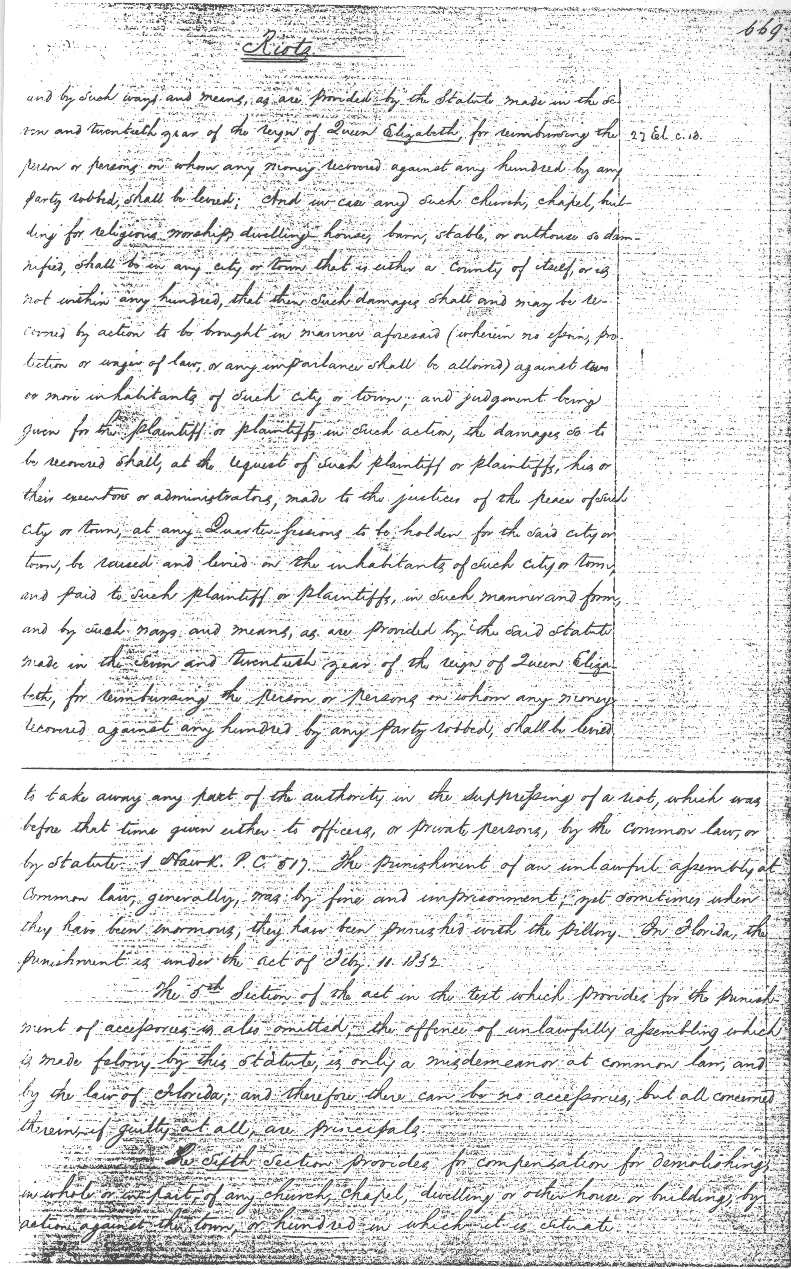 669.
Riots.
and by such ways and means, as are provided by the Statute made in the se-
ven and twentieth year of the reign of Queen Elizabeth, for reimbursing the
27 El. c. 13.
person or persons on whom any money recovered against any hundred by any
party robbed, shall be levied; And in case any such church, chapel, buil-
ding for religious worship, dwelling house, barn, stable, or outhouse so dam-
nified, shall be in any city or town that is either a County of itself, or is
not within any hundred, that then such damages shall and may be re-
covered by action to be brought in manner aforesaid (wherein no essoin, pro-
tection or wager of law, or any imparlance shall be allowed) against two
or more inhabitants of such city or town; and judgment being
given for the plaintiff or plaintiffs in such action, the damages so to
be recovered shall, at the request of such plaintiff or plaintiffs, his or
their executors or administrators, made to the justices of the peace of such
city or town, at any Quarter-sessions to be holden for the said city or
town, be raised and levied on the inhabitants of such city or town,
and paid to such plaintiff or plaintiffs, in such manner and form,
and by such ways and means, as are provided by the said Statute
made in the seven and twentieth year of the reign of Queen Eliza-
beth, for reimbursing the person or persons on whom any money
recovered against any hundred by any party robbed, shall be levied
to take away any part of the authority in the suppressing of a riot, which was
before that time given either to officers, or private persons, by the common law, or
by Statute. 1 Hawk. P.C. 517. The punishment of an unlawful assembly at
Common law, generally, was by fine and imprisonment; yet sometimes when
they have been enormous, they have been punished with the pillory. In Florida, the
punishment is under the act of Feby. 11. 1832
The 5th Section of the act in the text which provides for the punish
ment of accessories is also omitted; the offence of unlawfully assembling which
is made felony by this statute, is only a misdemeanor at common law, and
by the law of Florida; and therefore there can be no accessories, but all concerned
therein, if guilty at all, are principals.
The sixth section provides for compensation for demolishing
in whole or in part, of any church, chapel, dwelling or other house or building, by
action against the town, or hundred in which it is situate